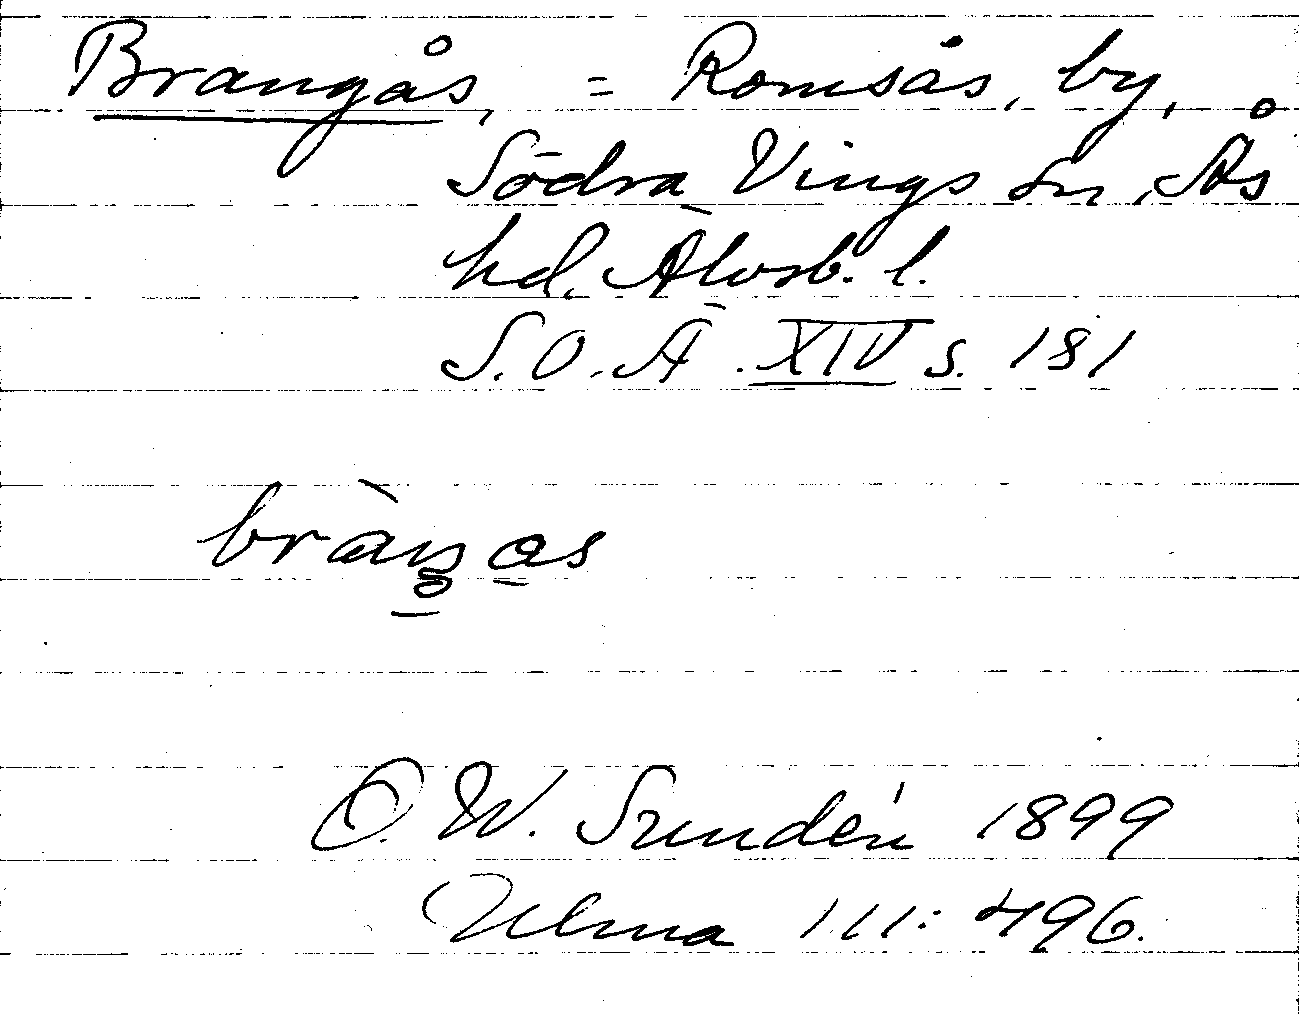 Brangås, = Romsås, by,
Södra Vings sn, Ås
hd. Älvsb. l.
S.O.Ä. XIV s. 181
O. W. Sundén 1899
Ulma 111: 496.